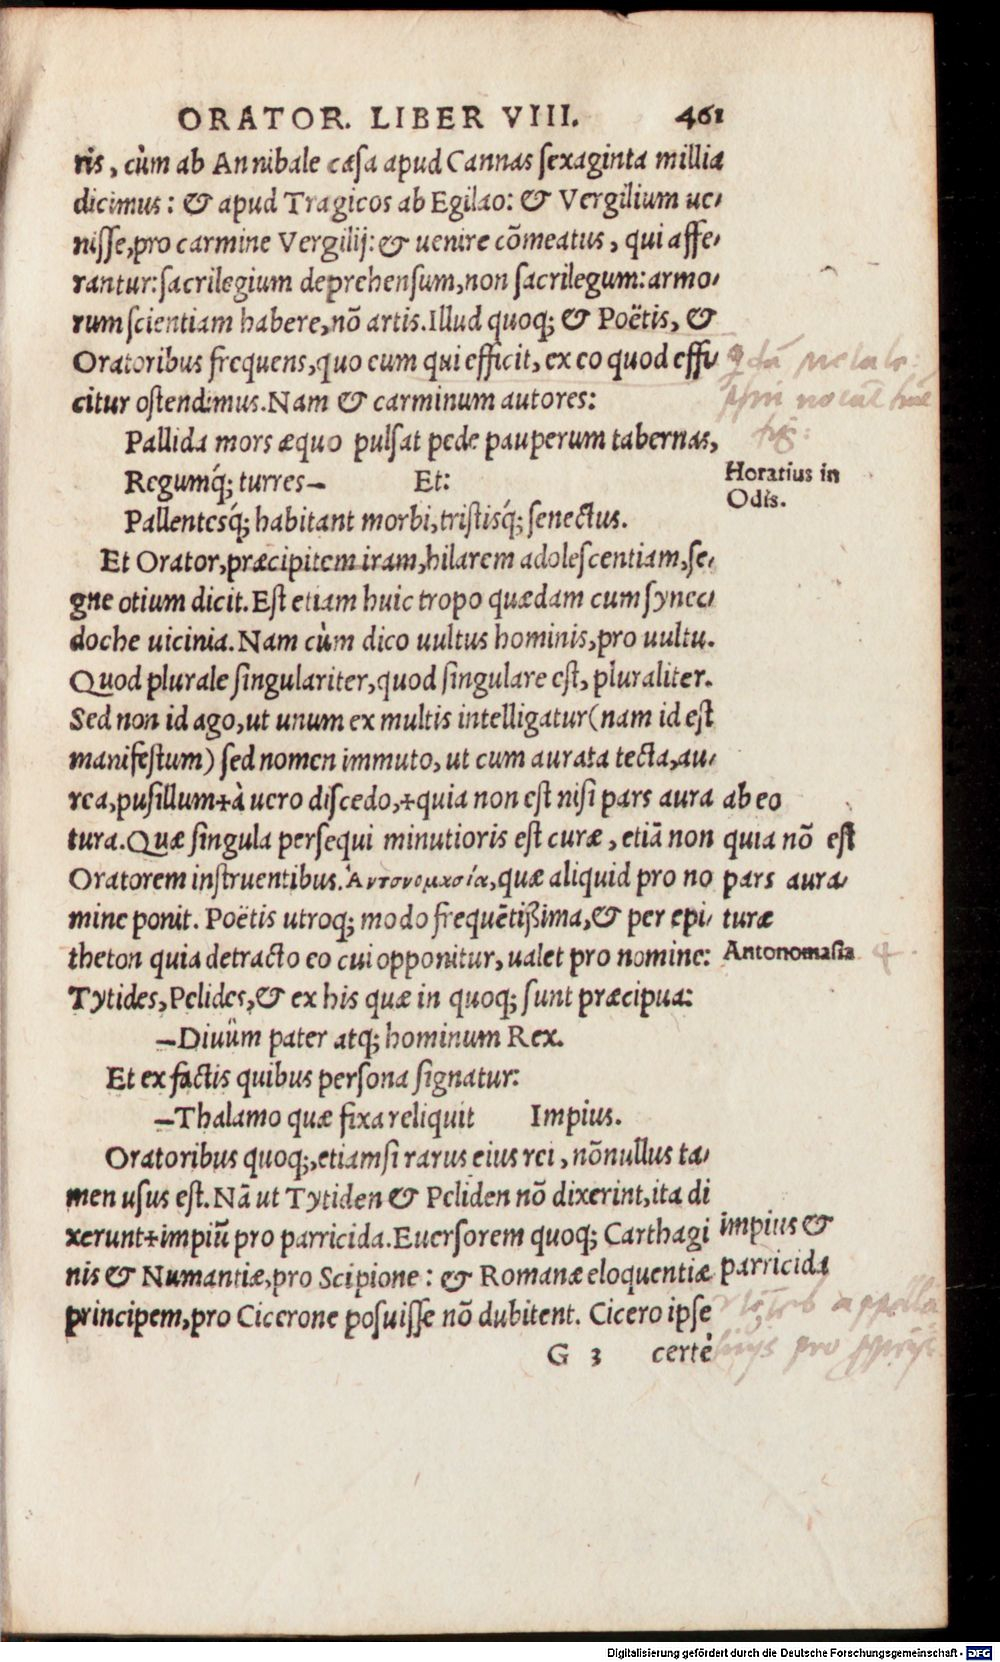 ORATOR. LIBER VIII. 461
ris, cùm ab Annibale cæsa apud Cannas sexaginta millia
dicimus: & apud Tragicos ab Egilao: & Vergilium ue-
nisse, pro carmine Vergilij: & uenire cõmeatus, qui affe-
rantur: sacrilegium deprehensum, non sacrilegum: armo-
rum scientiam habere, nõ artis. Illud quoq; & Poëtis, &
Oratoribus frequens, quo eum qui efficit, ex eo quod effi-
citur ostendimus. Nam & carminum autores:
Pallida mors æquo pulsat pede pauperum tabernas,
Regumq́; turres— Et:
Horatius in
Odis.
Pallentesq́; habitant morbi, tristisq́; senectus.
Et Orator, præcipitem iram, hilarem adolescentiam, se-
gne otium dicit. Est etiam huic tropo quædam cum synec-
doche uicinia. Nam cùm dico uultus hominis, pro uultu.
Quod plurale singulariter, quod singulare est, pluraliter.
Sed non id ago, ut unum ex multis intelligatur (nam id est
manifestum) sed nomen immuto, ut cum aurata tecta, au-
rea, pusillum+à uero discedo,+quia non est nisi pars aura
tura. Quæ singula persequi minutioris est curæ, etiã non
Oratorem instruentibus. Ἀντονομασία, quæ aliquid pro no
mine ponit. Poëtis utroq; modo frequẽtißima, & per epi-
ab eo
quia nõ est
pars aura-
turæ
theton quia detracto eo cui opponitur, ualet pro nomine:
Antonomasia
Tytides, Pelides, & ex his quæ in quoq; sunt præcipua:
—Diuûm pater atq; hominum Rex.
Et ex factis quibus persona signatur:
—Thalamo quæ fixa reliquit Impius.
Oratoribus quoq;, etiamsi rarus eius rei, nõnullus ta-
men usus est. Nã ut Tytiden & Peliden nõ dixerint, ita di
xerunt+impiũ pro parricida. Euersorem quoq; Carthagi
nis & Numantiæ, pro Scipione: & Romanæ eloquentiæ
impius &
parricida
principem, pro Cicerone posuisse nõ dubitent. Cicero ipse
G 3 certè
pro
Digitalisierung gefördert durch die Deutsche Forschungsgemeinschaft - DFG